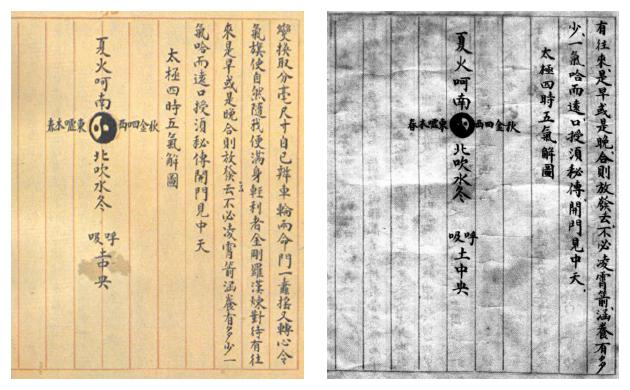 變換取分毫尺寸自己辨車輪兩命門一纛搖又轉心令
氣旗使自然隨我便滿身輕利者金剛羅漢煉對待有往
來是早或是晚合則放發去不必凌霄箭涵養有多少一
氣哈而遠口授須秘傳開門見中天
太極四時五氣解圖
夏火呵南
春木噓東
西呬金秋
北吹水冬
呼吸
土中央
有往來是早或是晚合則放發去不必凌霄箭涵養有多
少一氣哈而遠口授須秘傳開門見中天
太極四時五氣解圖
夏火呵南
春木噓東
西呬金秋
北吹水冬
呼吸
土中央